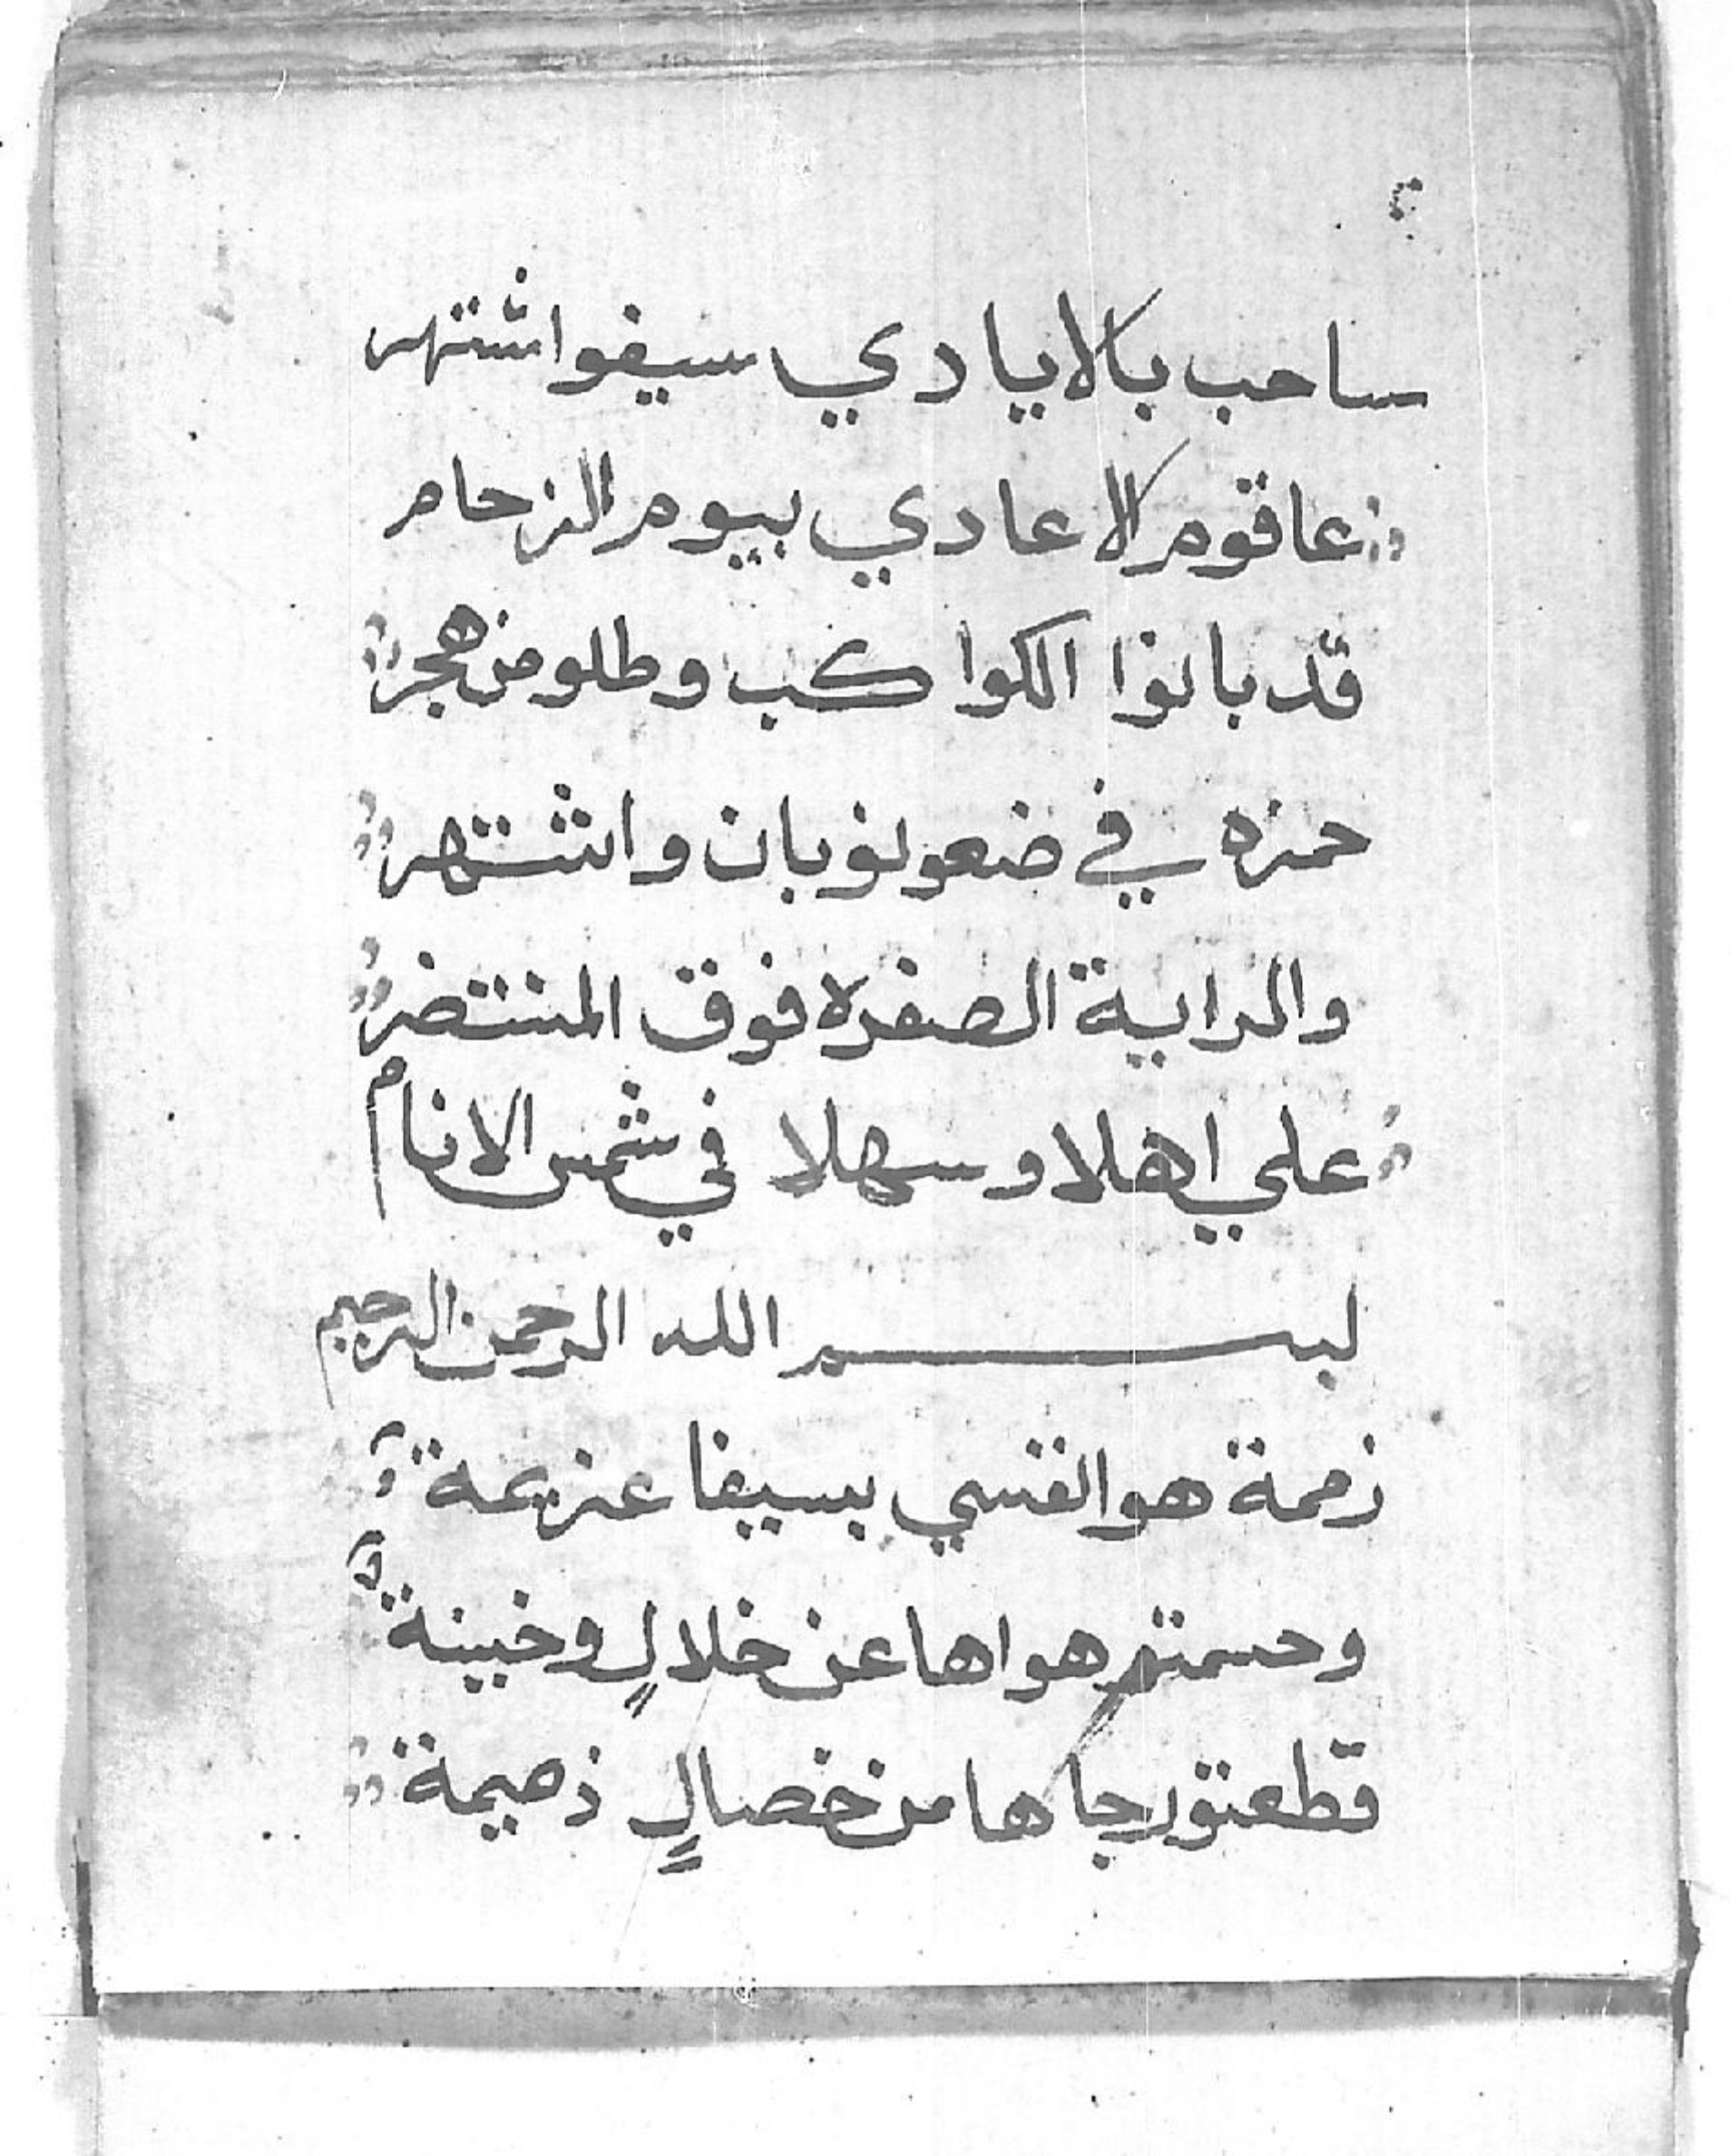 ساحب بالايادي سيفو اشتهر
عا قوم الاعادي بيوم الزحام
قد بانوا الكواكب وطلو من هجر
حمزه في ضعونو بان واشتهر
والراية الصفره فوق المنتضر
علي اهلا وسهلا في شمس الانام
بسم الله الرحمن الرحيم
زممة هو النفسي بسيفا عزيمة
وحسمتم هواها عن خلالٍ وخبينة
قطعتو رجاها من خصالٍ ذميمة